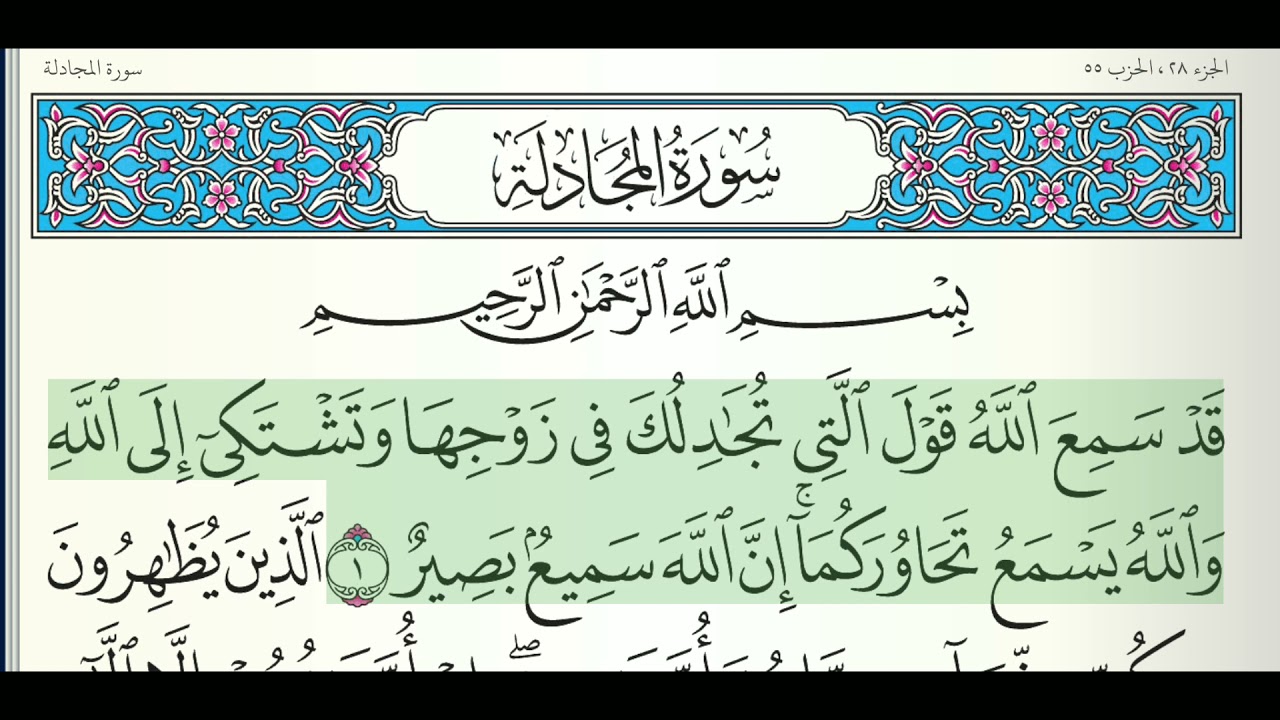 الجزء ٢٨، الحزب ٥٥
سورة المجادلة
سُورَةُ المُجَادلَةِ
بِسْمِ ٱللَّهِ ٱلرَّحْمَٰنِ ٱلرَّحِيمِ
قَدْ سَمِعَ ٱللَّهُ قَوْلَ ٱلَّتِى تُجَٰدِلُكَ فِى زَوْجِهَا وَتَشْتَكِىٓ إِلَى ٱللَّهِ
وَٱللَّهُ يَسْمَعُ تَحَاوُرَكُمَآ ۚ إِنَّ ٱللَّهَ سَمِيعٌۢ بَصِيرٌ ١ ٱلَّذِينَ يُظَٰهِرُونَ